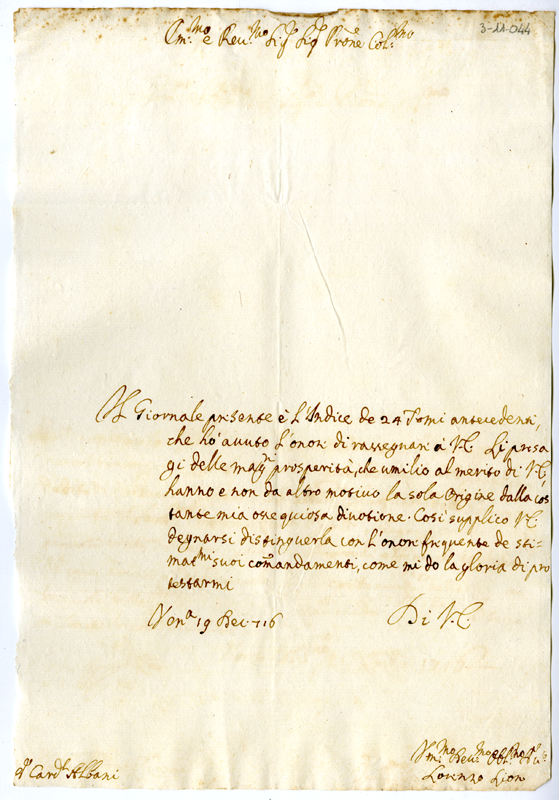 3-11-044
Em.mo e Rev.mo Sig.r Sig.r Prone Col.mo
Il Giornale presente è l'Indice de 24 Tomi antecedenti,
che hò avuto l'onor di rassegnar à V.E. Li presa
gi delle mag.ri prosperità, che umilio al merito di V.E.
hanno e non da altro motivo la sola Origine dalla cos
tante mia ossequiosa divotione. Così supplico V.E.
degnarsi distinguerla con l'onor frequente de sti=
mat.mi suoi comandamenti, come mi do la gloria di pro
testarmi
Ven.a 19 Dec. 716
Di V.E.
S.r Card.l Albani
Um.mo Dev.mo Obl.mo
Lorenzo Lion